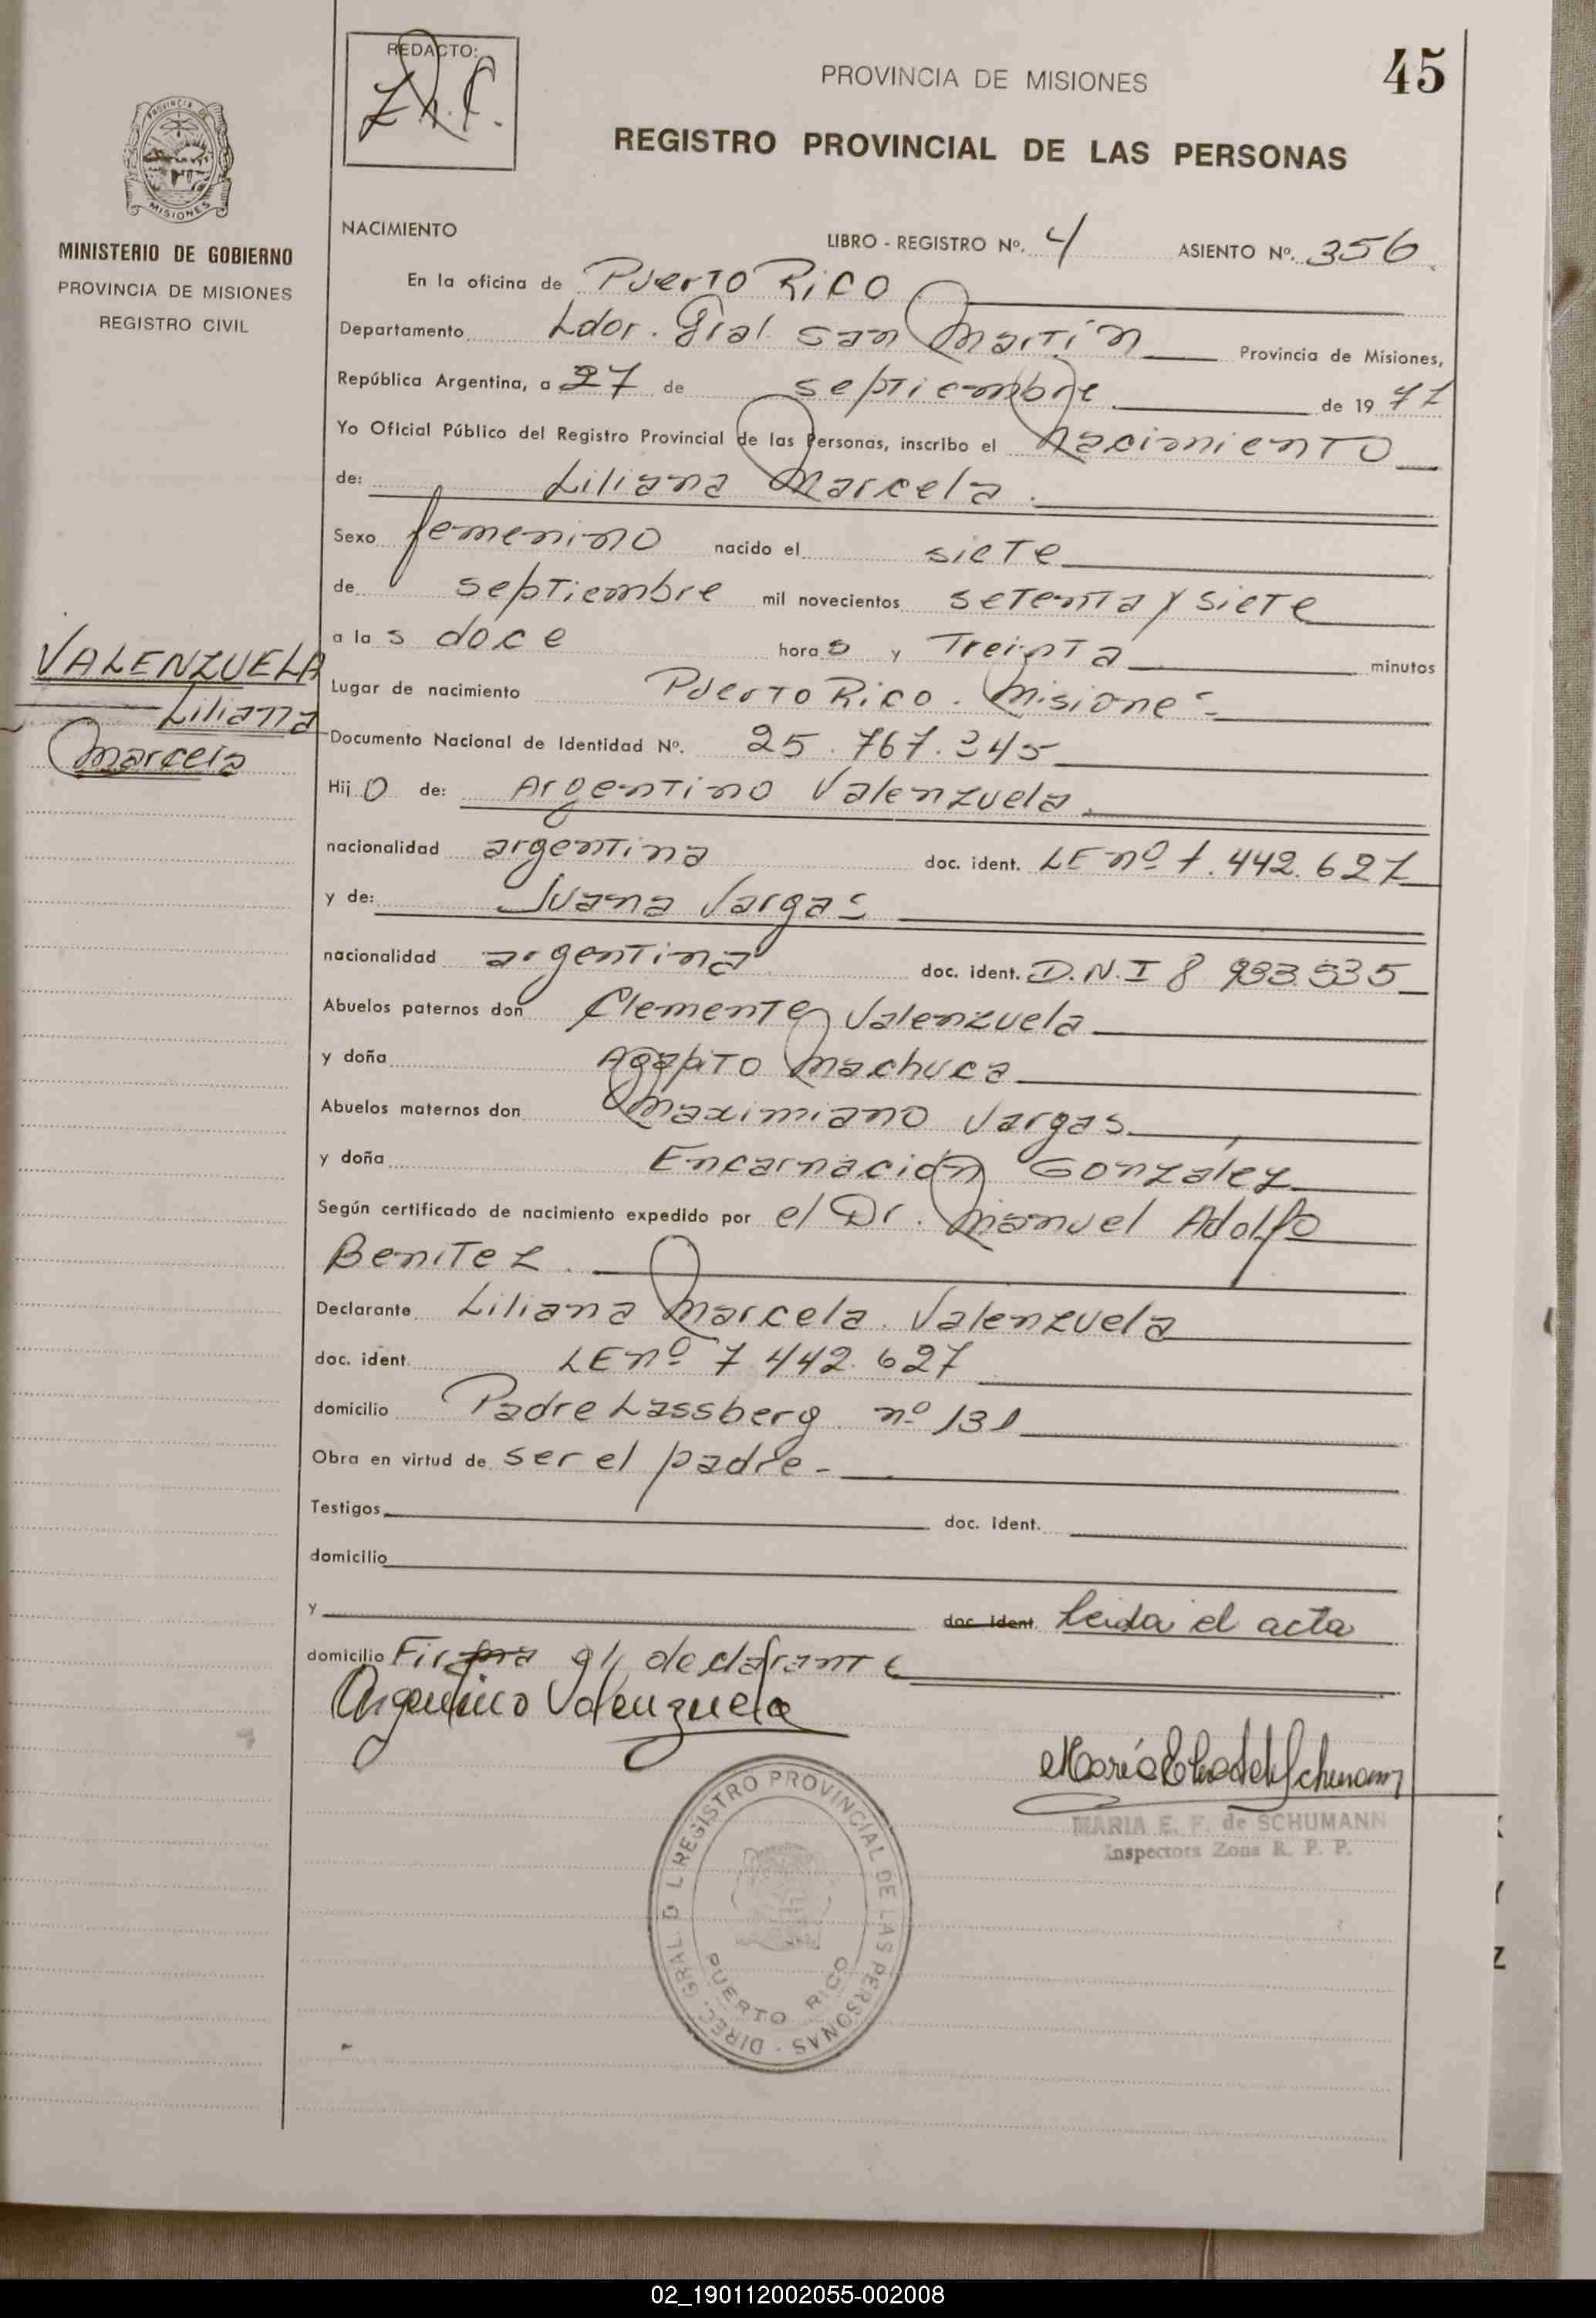 REDACTO:
PROVINCIA DE MISIONES
45
REGISTRO PROVINCIAL DE LAS PERSONAS
PROVINCIA DE
MISIONES
MINISTERIO DE GOBIERNO
PROVINCIA DE MISIONES
REGISTRO CIVIL
VALENZUELA
Liliana
Marcela
NACIMIENTO LIBRO - REGISTRO Nº. 4 ASIENTO Nº. 356
En la oficina de Puerto Rico
Departamento Ldor. Gral. San Martín Provincia de Misiones,
República Argentina, a 27 de septiembre de 19 77
Yo Oficial Público del Registro Provincial de las Personas, inscribo el nacimiento
de: Liliana Marcela.
Sexo femenino nacido el siete
de septiembre mil novecientos setenta y siete
a la s doce hora s y treinta minutos
Lugar de nacimiento Puerto Rico. Misiones-
Documento Nacional de Identidad Nº. 25.767.345
Hij o de: Argentino Valenzuela.
nacionalidad argentina doc. ident. LE nº 7.442.627
y de: Juana Vargas
nacionalidad argentina doc. ident. D.N.I 8 933.535
Abuelos paternos don Clemente Valenzuela
y doña Agapito Machuca
Abuelos maternos don Maximiano Vargas
y doña Encarnación González
Según certificado de nacimiento expedido por el Dr. Manuel Adolfo
Benitez.
Declarante Liliana Marcela Valenzuela
doc. ident. LE nº 7 442.627
domicilio Padre Lassberg nº 131
Obra en virtud de ser el padre-
Testigos doc. ident.
domicilio
y doc. ident. Leida el acta
domicilio Firma el declarante
Argentino Valenzuela
MARIA E. F. de SCHUMANN
Inspectora Zona R. P. P.
DIREC. GRAL. D L REGISTRO PROVINCIAL DE LAS PERSONAS
PUERTO RICO
02_190112002055-002008